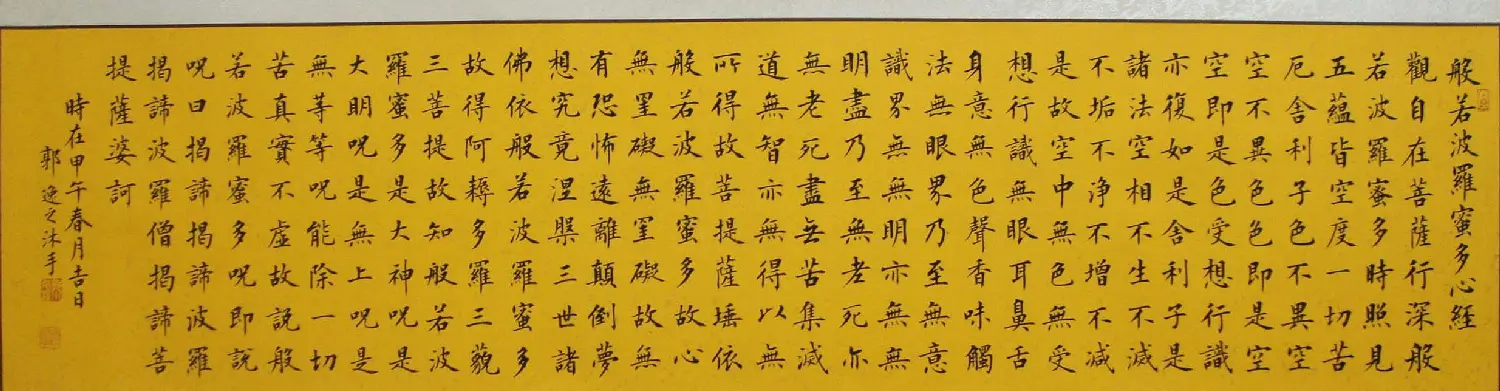 般若波羅蜜多心経
觀自在菩薩行深般
若波羅蜜多時照見
五蘊皆空度一切苦
厄舍利子色不異空
空不異色色即是空
空即是色受想行識
亦復如是舍利子是
諸法空相不生不滅
不垢不净不增不减
是故空中無色無受
想行識無眼耳鼻舌
身意無色聲香味觸
法無眼界乃至無意
識界無無明亦無無
明盡乃至無老死亦
無老死盡无苦集滅
道無智亦無得以無
所得故菩提薩埵依
般若波羅蜜多故心
無罣礙無罣礙故無
有恐怖遠離顛倒夢
想究竟涅槃三世諸
佛依般若波羅蜜多
故得阿耨多羅三藐
三菩提故知般若波
羅蜜多是大神呪是
大明呪是無上呪是
無等等呪能除一切
苦真實不虛故説般
若波羅蜜多呪即説
呪曰揭諦揭諦波羅
揭諦波羅僧揭諦菩
提薩婆訶
時在甲午春月吉日
郭逸之沐手